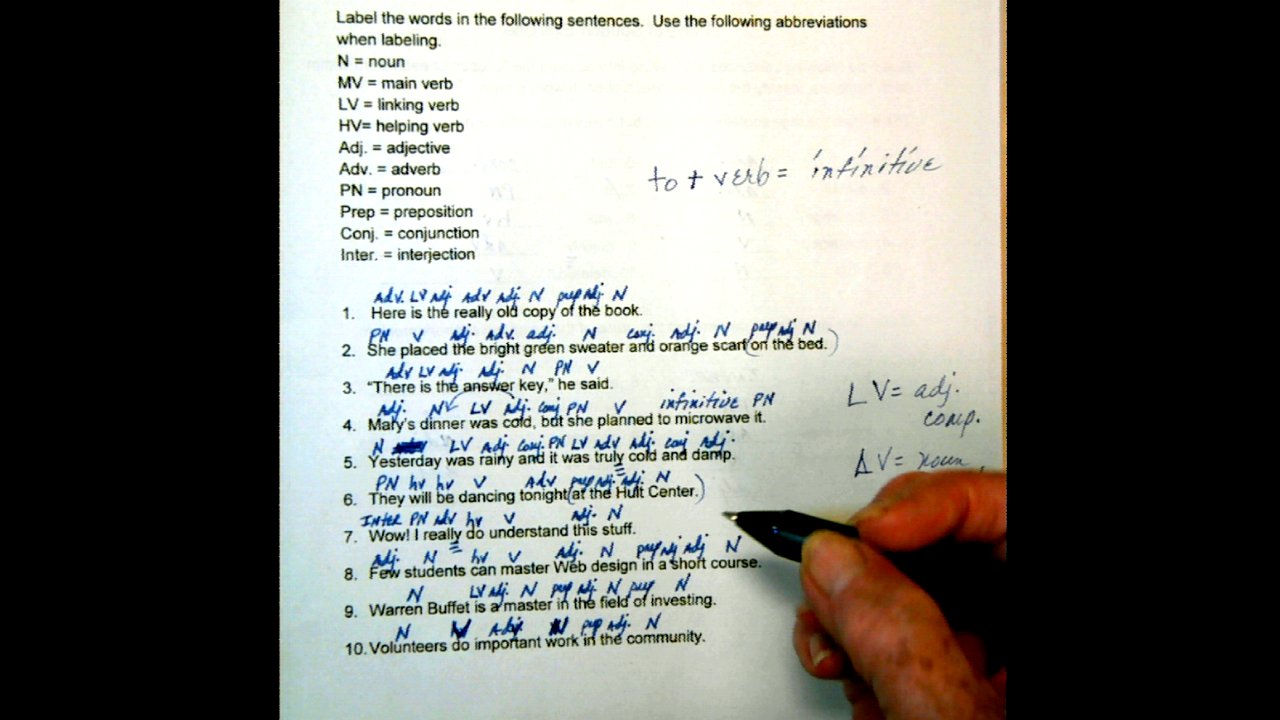 Label the words in the following sentences. Use the following abbreviations
when labeling.
N = noun
MV = main verb
LV = linking verb
HV= helping verb
Adj. = adjective
Adv. = adverb
PN = pronoun
Prep = preposition
Conj. = conjunction
Inter. = interjection
to + verb = infinitive
Adv. LV adj. Adv Adj N prep Adj N
1. Here is the really old copy of the book.
PN V Adj. Adv. adj. N conj. Adj. N prep adj N
2. She placed the bright green sweater and orange scarf (on the bed.)
Adv LV adj. Adj. N PN V
3. "There is the answer key," he said.
Adj. N LV Adj. conj PN V infinitive PN
4. Mary's dinner was cold, but she planned to microwave it.
N LV Adj conj. PN LV adv Adj. conj Adj.
5. Yesterday was rainy and it was truly cold and damp.
PN hv hv V Adv prep Adj. Adj. N
6. They will be dancing tonight (at the Hult Center.)
Inter PN adv hv V Adj. N
7. Wow! I really do understand this stuff.
Adj. N hv V Adj. N prep Adj Adj N
8. Few students can master Web design in a short course.
N LV Adj. N prep Adj. N prep N
9. Warren Buffet is a master in the field of investing.
N Adj N prep Adj. N
10. Volunteers do important work in the community.
LV = adj.
comp.
AV = noun